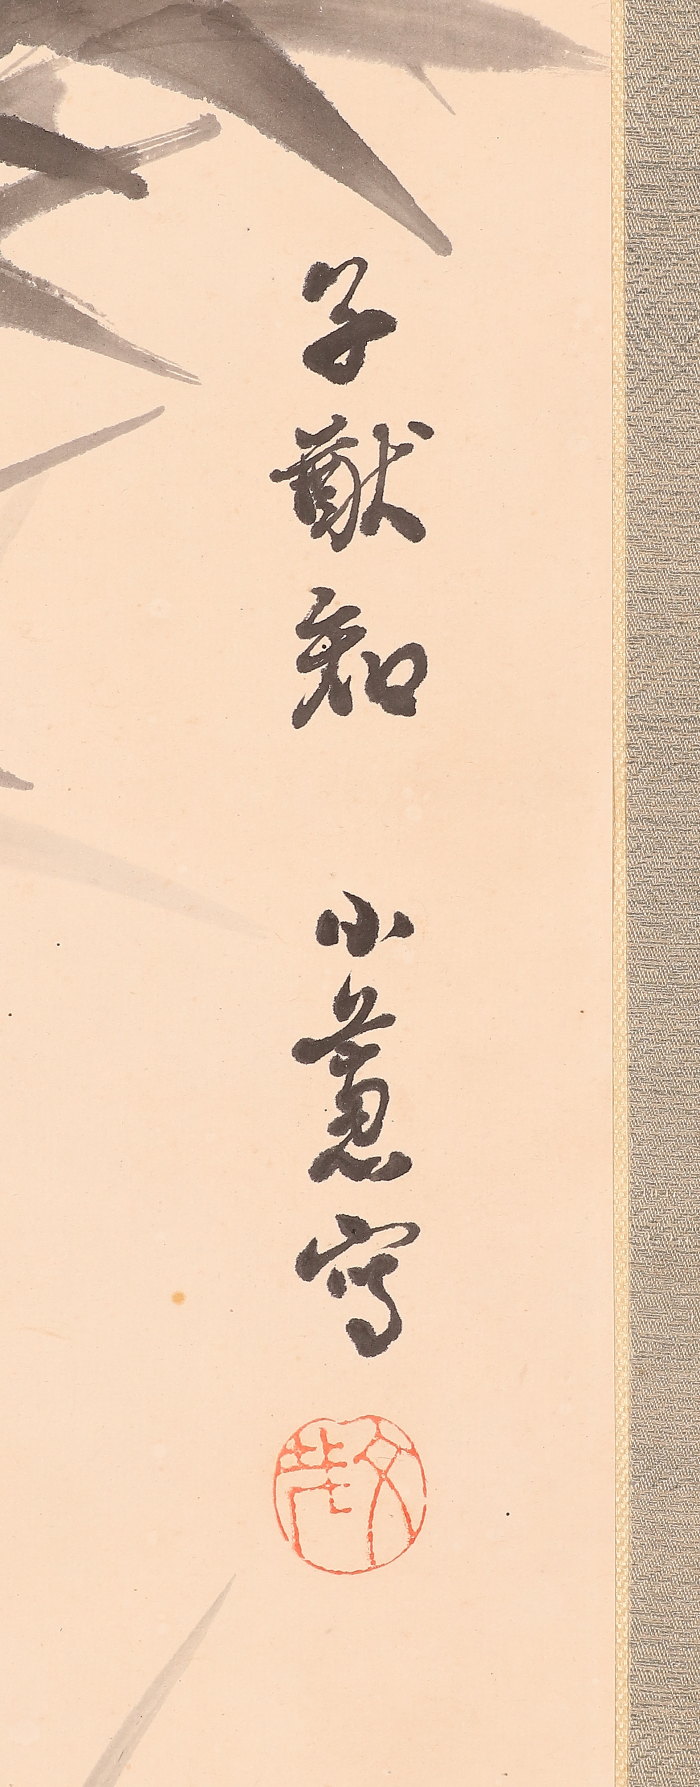 子猷知 小蕙寫